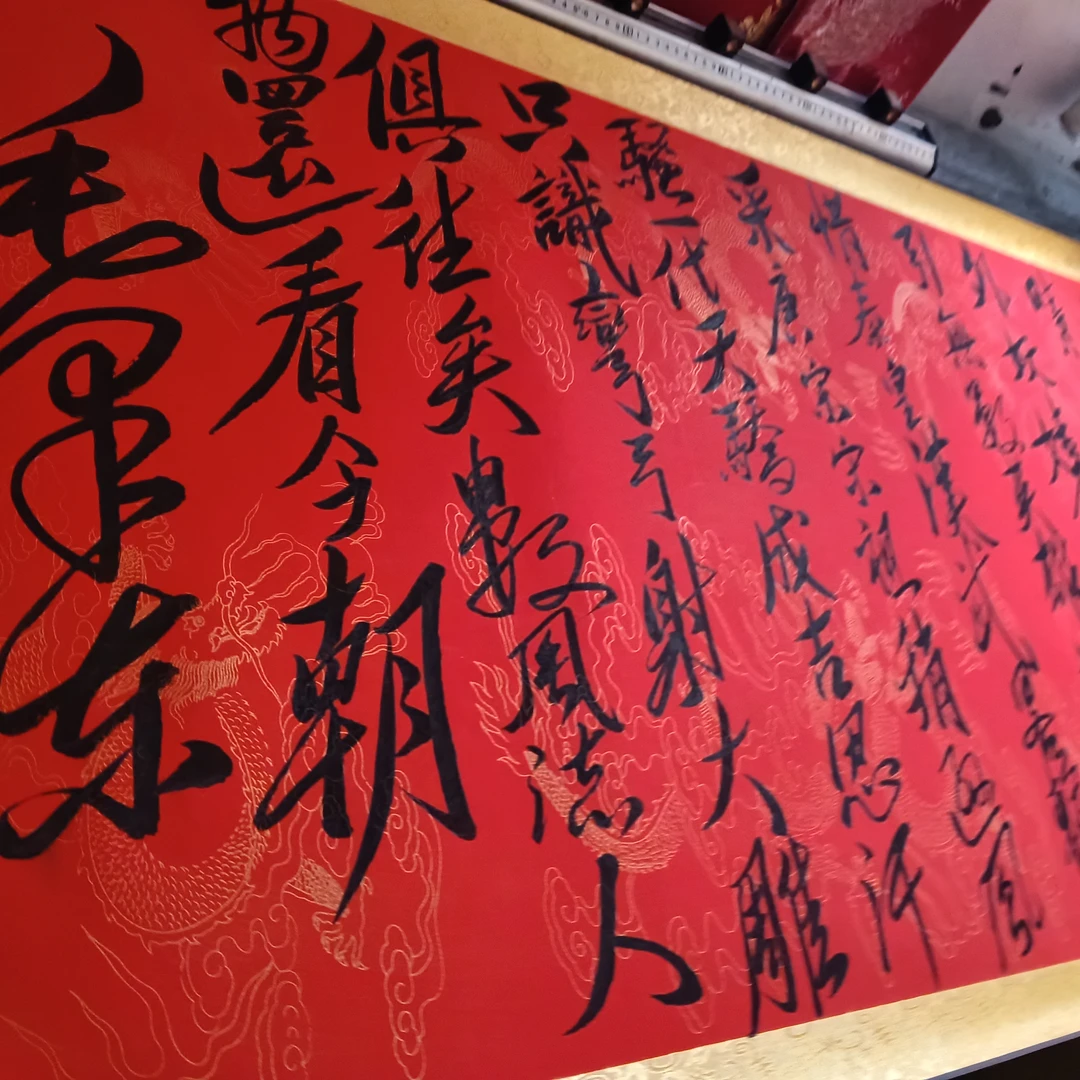 外妖嬈
引無數英雄
惜秦皇漢武
采唐宗宋祖稍逊風
騷一代天驕成吉思汗
只識彎弓射大雕
俱往矣數風流人
物還看今朝
毛澤東